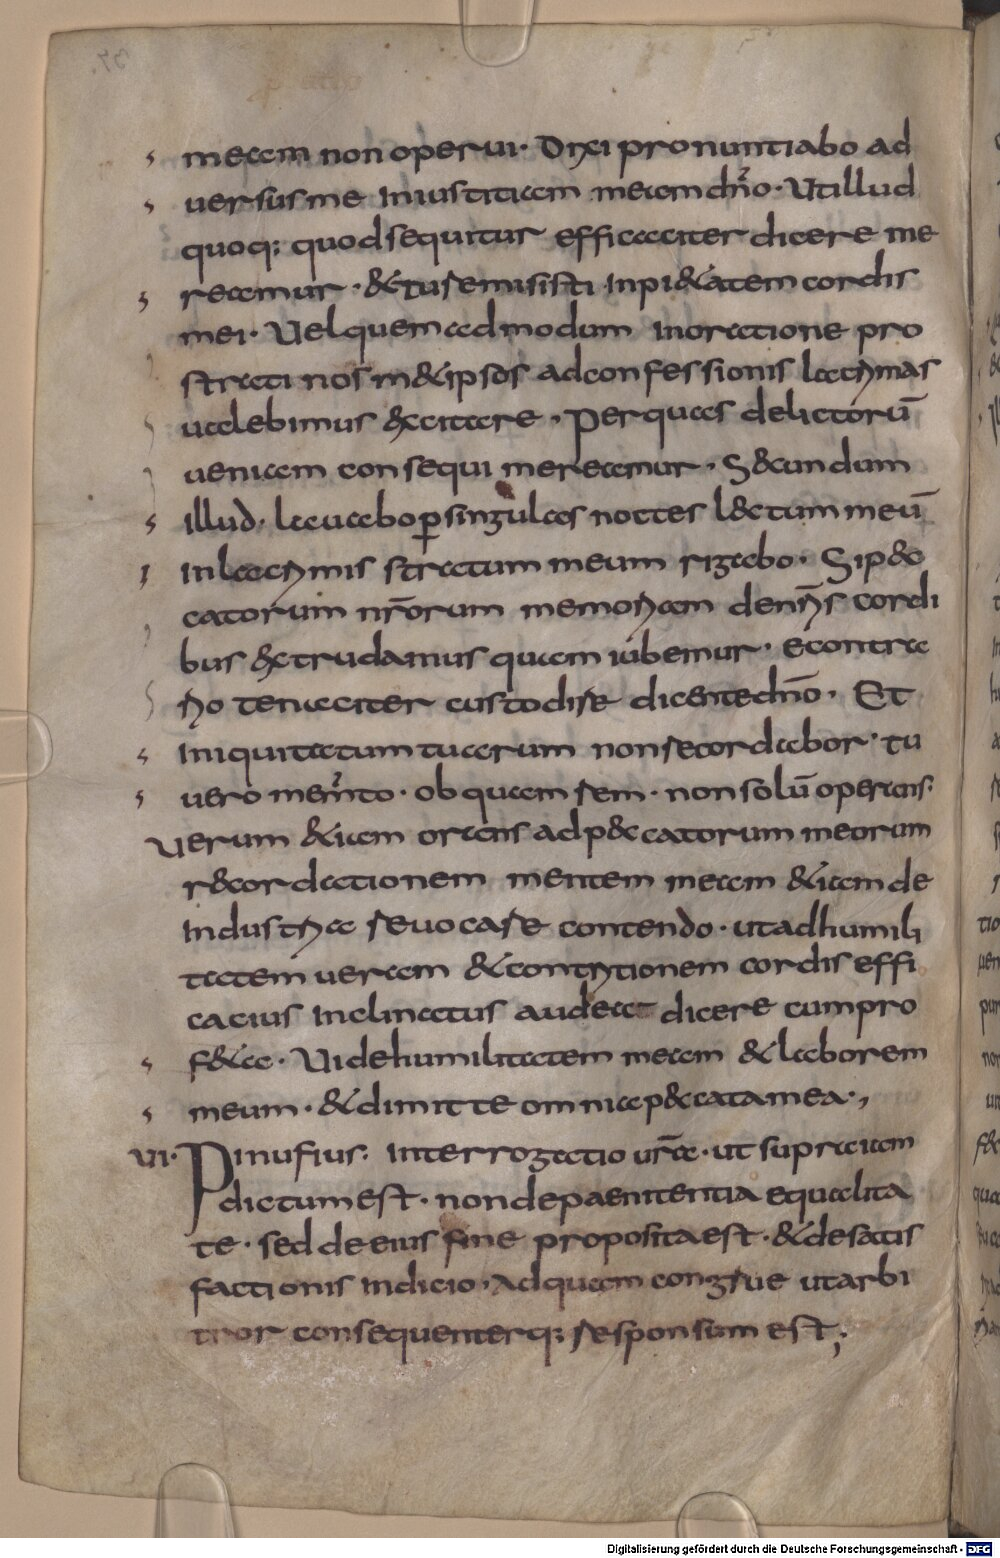 meam non operui · Dixi pronuntiabo ad
uersus me iniustitiam meam dño · Ut illud
quoq; quod sequitur efficaciter dicere me
reamur · & tu remisisti inpi&atem cordis
mei · Uel quemadmodum in oratione pro
strati nosm&ipsos ad confessionis lacrimas
ualebimus excitare · Per quas delictorū
ueniam consequi mereamur · S&cundum
illud · lauabo ꝑ singulas noctes l&ctum meū
in lacrimis stratum meum rigabo · Si p&c
catorum nr̄orum memoriam de nr̄is cordi
bus extrudamus quam iubemur · e contra
rio tenaciter custodire dicente dn̄o · Et
iniquitatum tuarum non recordabor · tu
uero memto · ob quam rem · non solū operans ·
Uerum &iam orans ad p&ccatorum meorum
r&cordationem mentem meam &iam de
industria reuocare contendo · ut ad humili
tatem ueram & contritionem cordis effi
cacius inclinatus audeat dicere cum pro
f&a · Uide humilitatem meam & laborem
meum · & dimitte omnia p&cata mea ·,
VI · Pinufius · Interrogatio ur̄a · ut supra iam
dictum est · non de paenitentia equalita
te · sed de eius fine proposita est · & de satis
factionis indicio · Ad quam congrue ut arbi
tror consequenterq; responsum est;
Digitalisierung gefördert durch die Deutsche Forschungsgemeinschaft - DFG